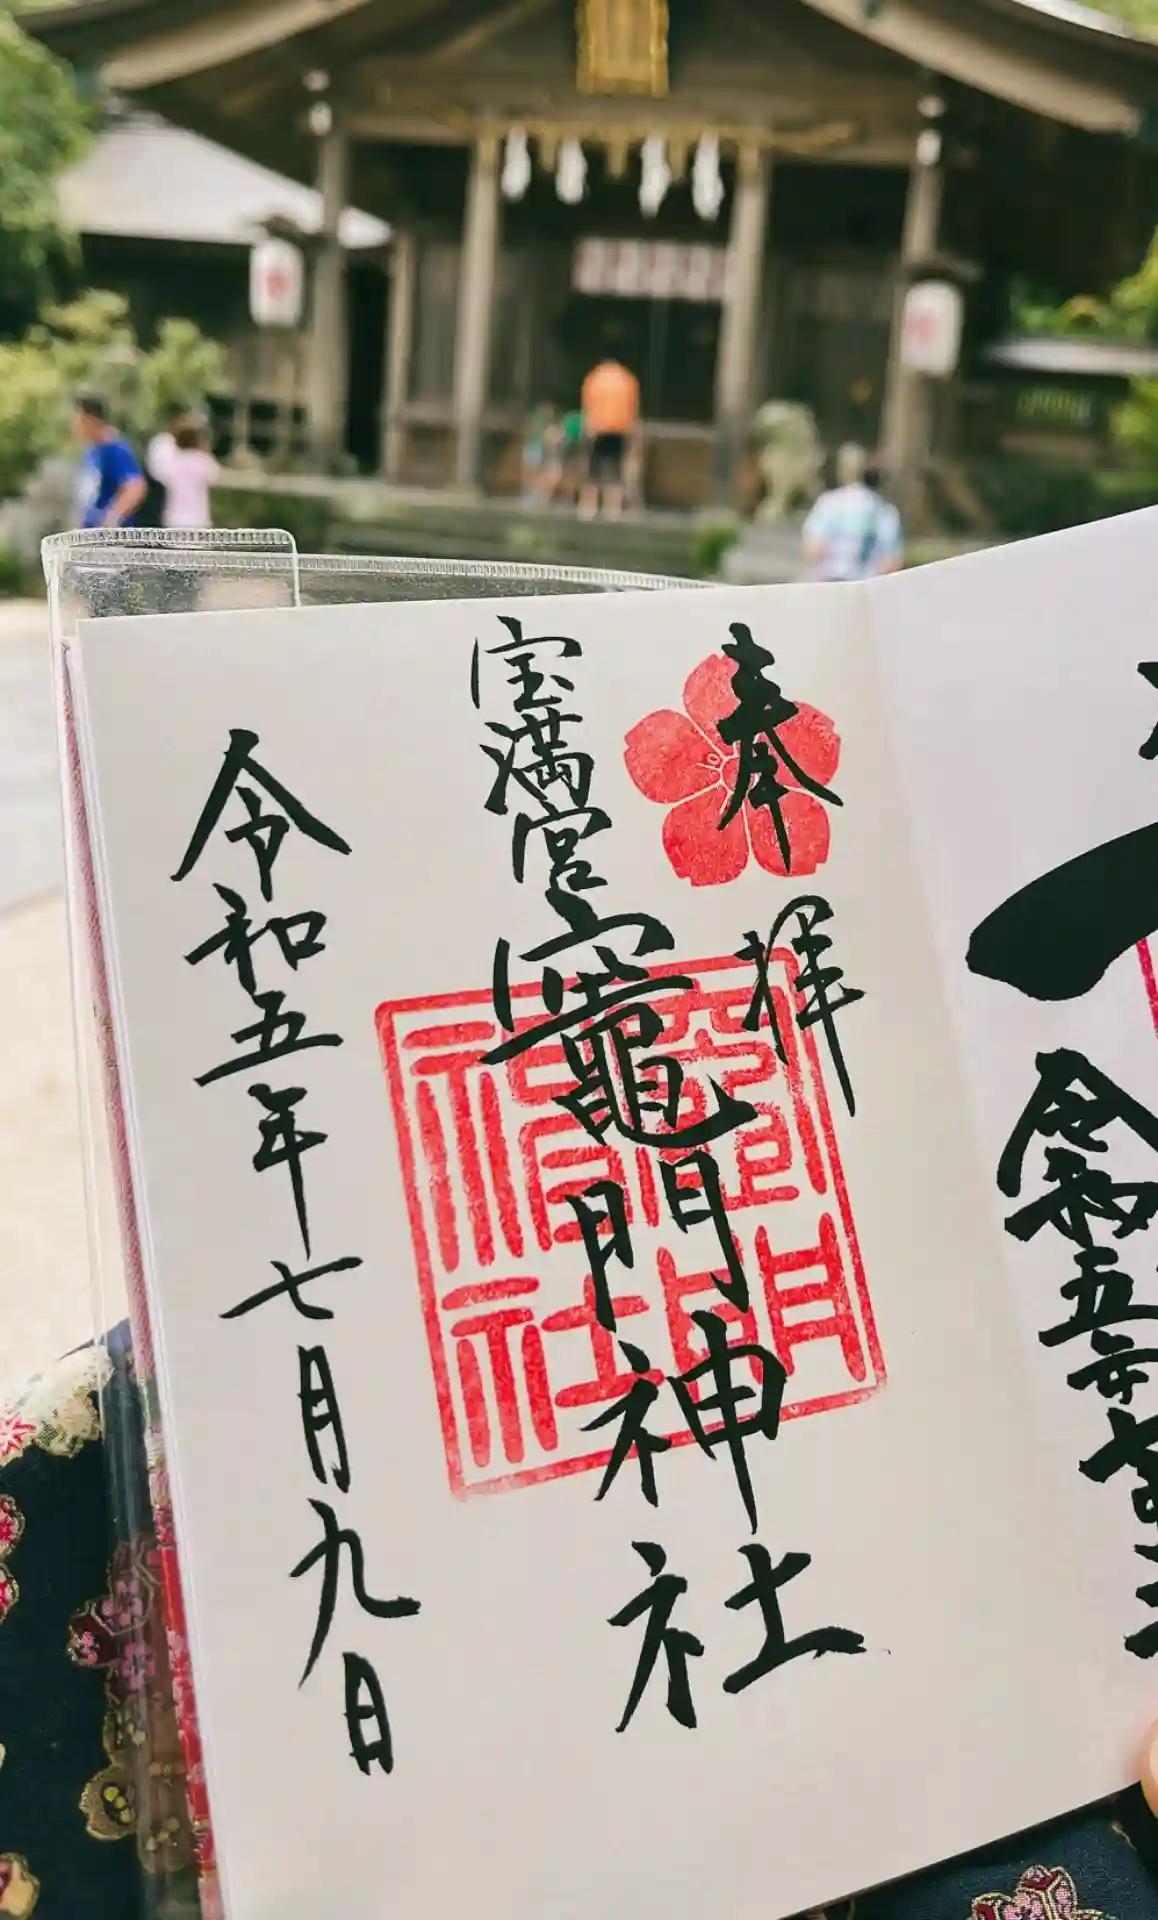 奉拝
宝満宮
竈門神社
令和五年七月九日
竈門
神社
令和五年七